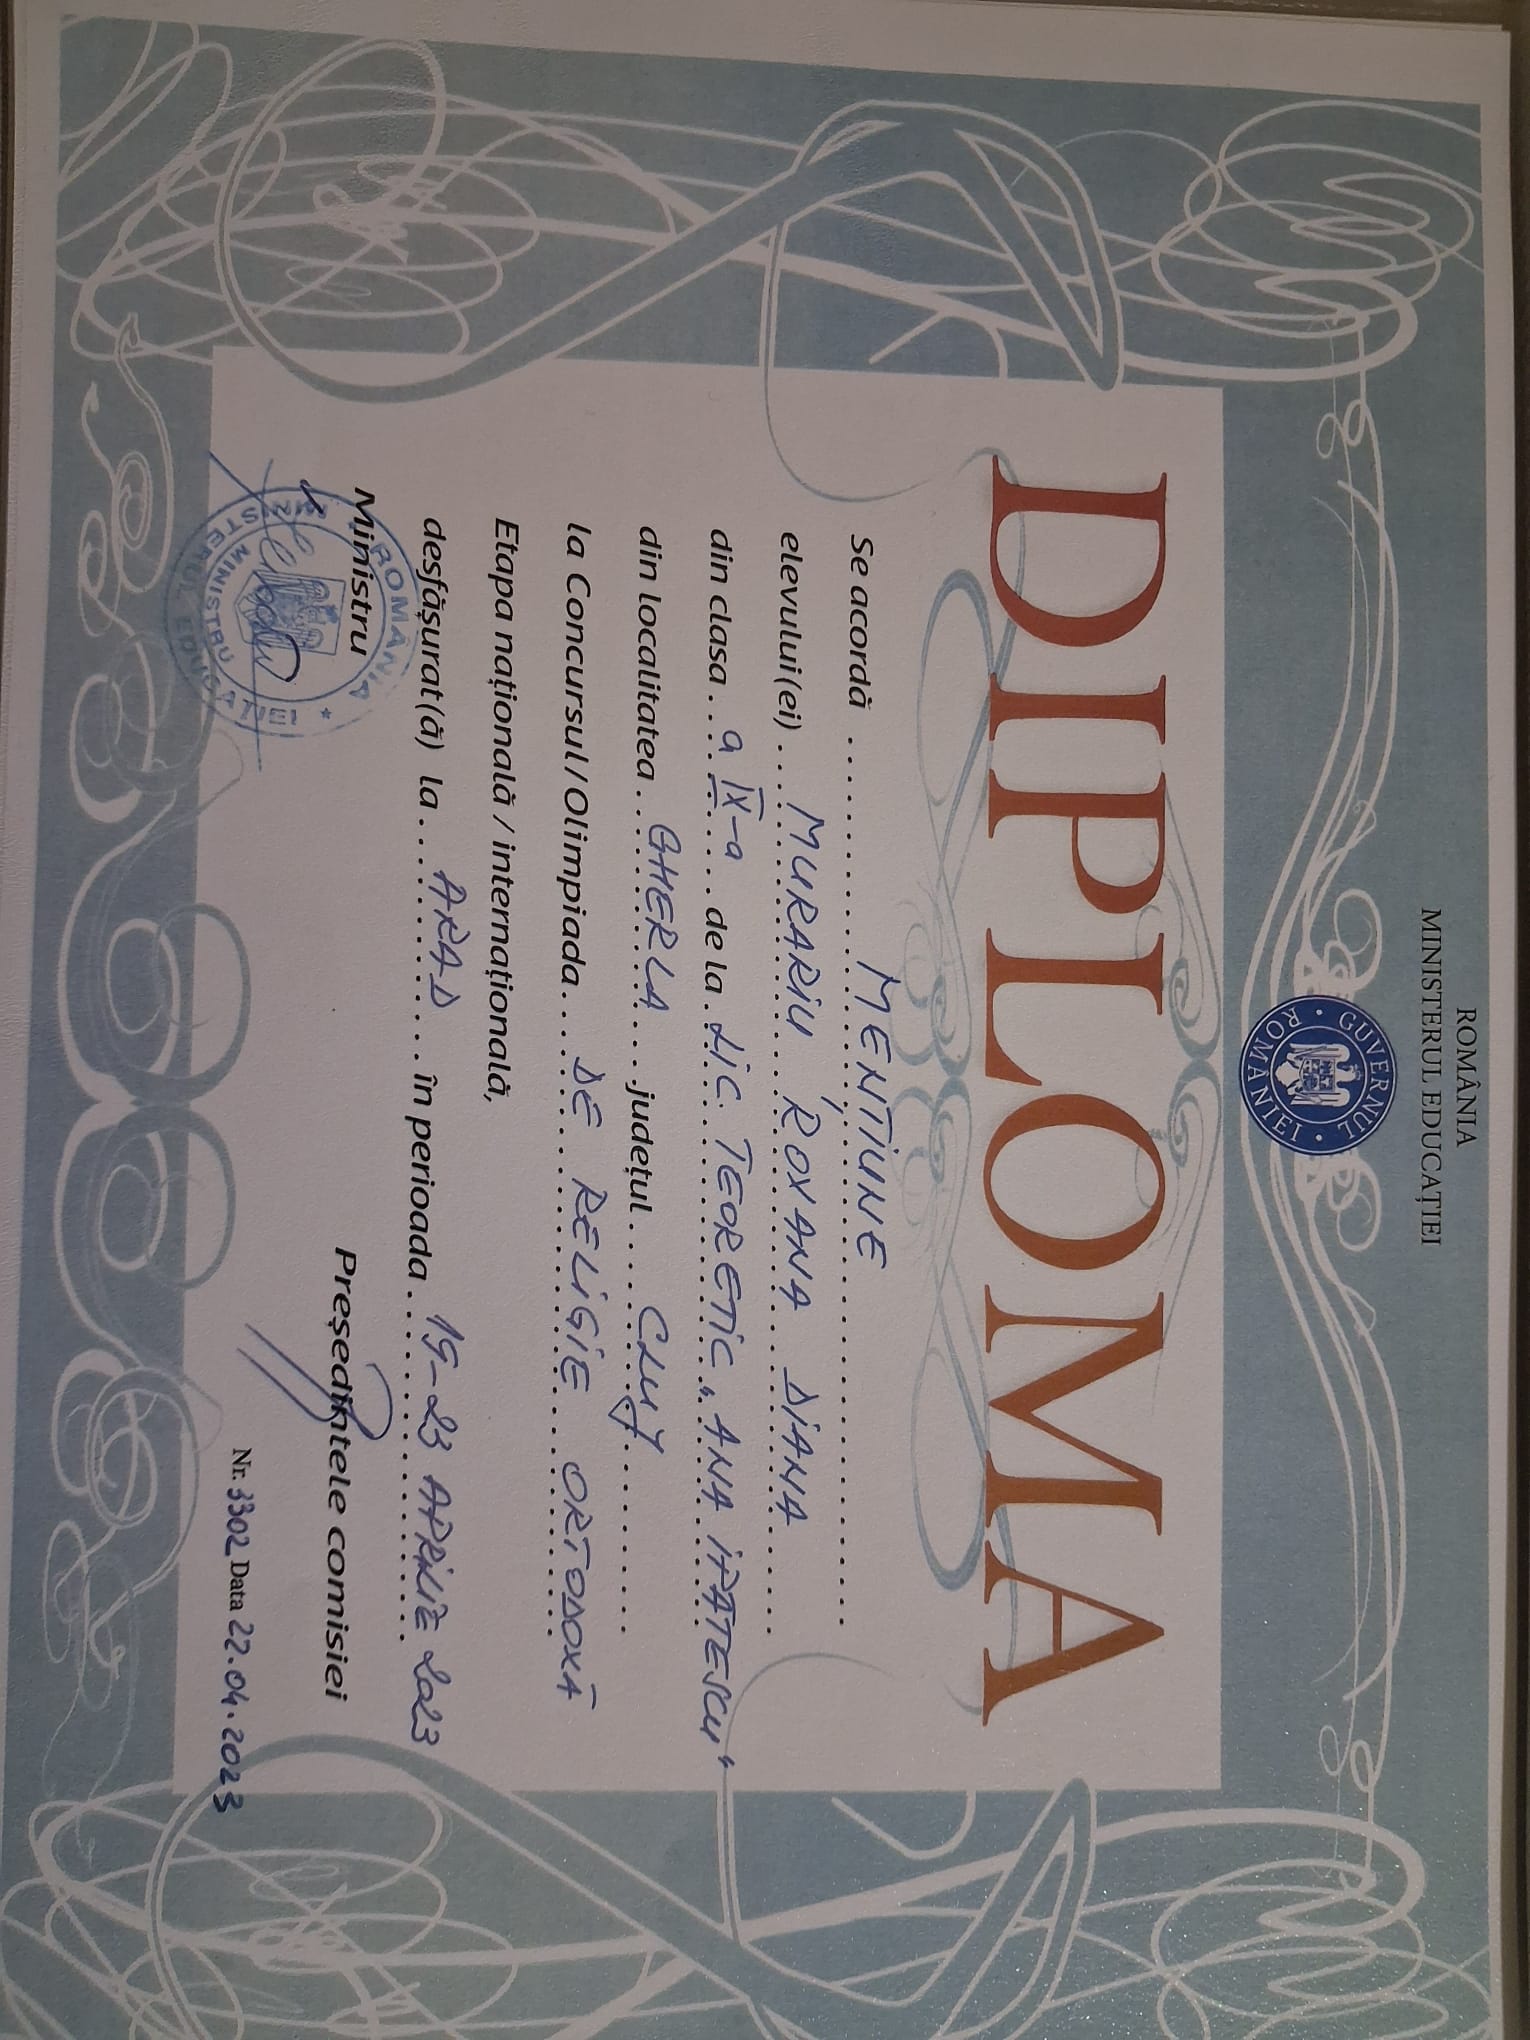 ROMÂNIA
MINISTERUL EDUCAȚIEI
GUVERNUL ROMÂNIEI
DIPLOMA
Se acordă MENȚIUNE
elevului(ei) MURARIU ROXANA DIANA
din clasa a IX-a de la LIC. TEORETIC „ANA IPĂTESCU"
din localitatea GHERLA județul CLUJ
la Concursul/Olimpiada DE RELIGIE ORTODOXĂ
Etapa națională / internațională,
desfășurat(ă) la ARAD în perioada 19-23 APRILIE 2023
Ministru
Președintele comisiei
ROMÂNIA * MINISTERUL EDUCAȚIEI
MINISTRU
Nr. 3302 Data 22.04.2023